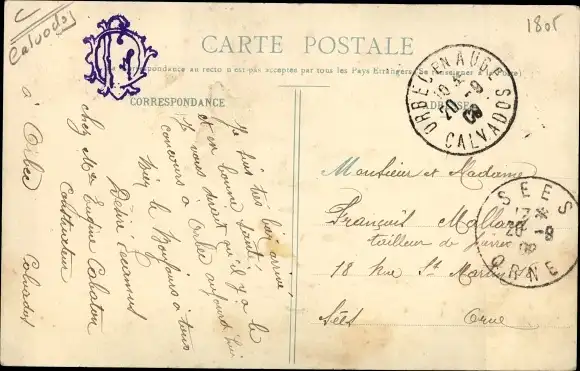 Calvados
1805
CARTE POSTALE
La Correspondance au recto n'est pas acceptée par tous les Pays Étrangers (Se renseigner à la Poste)
CORRESPONDANCE
ADRESSE
ORBEC EN AUGE
20 -9
CALVADOS
SEES
20 -9
ORNE
Je suis très bien arrivé
et en bonne santé.
Je vous dirait qu'il y a le
concours à Orbec aujourd'hui
Bien le Bonjours à tous
chez Mr Eugène
Constructeur
à Orbec Calvados
Monsieur et Madame
François Mallard
tailleur de pierre
18 Rue St Martin
Séés Orne